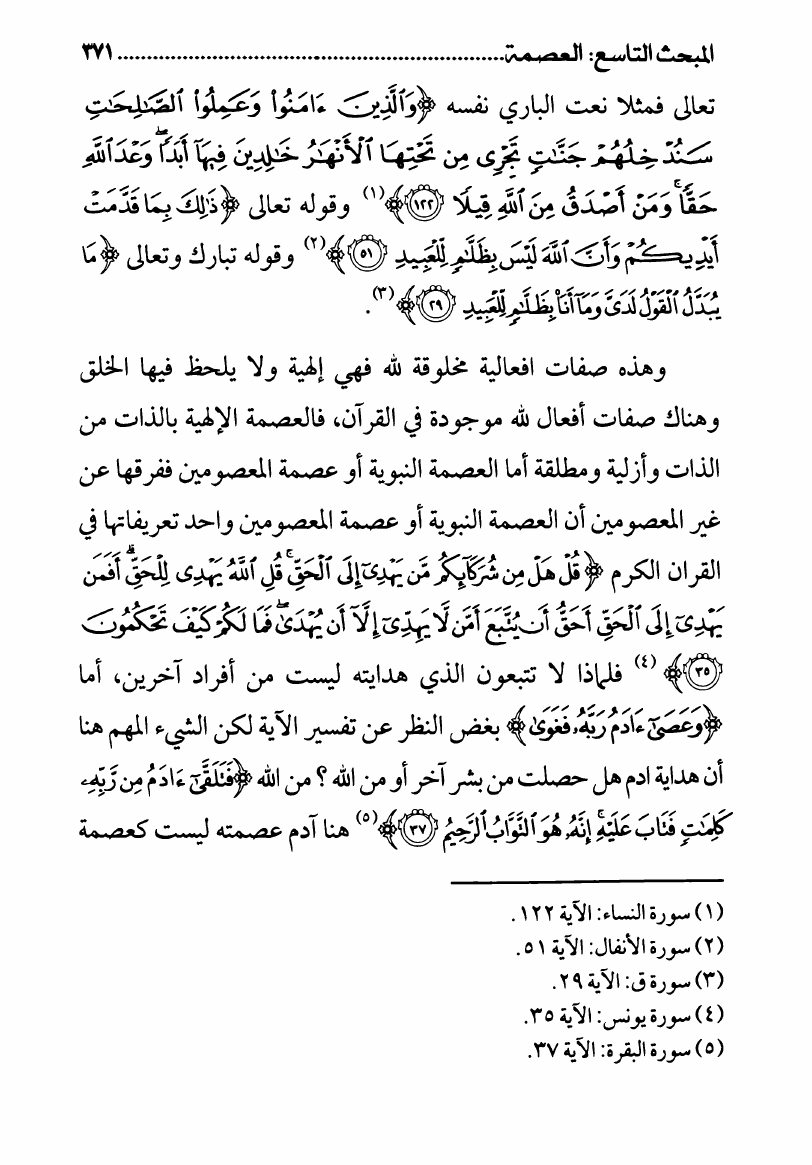 المبحث التاسع: العصمة.................................................................٣٧١
تعالى فمثلا نعت الباري نفسه ﴿وَٱلَّذِينَ ءَامَنُوا۟ وَعَمِلُوا۟ ٱلصَّـٰلِحَـٰتِ
سَنُدْخِلُهُمْ جَنَّـٰتٍ تَجْرِى مِن تَحْتِهَا ٱلْأَنْهَـٰرُ خَـٰلِدِينَ فِيهَآ أَبَدًۭا ۖ وَعْدَ ٱللَّهِ
حَقًّۭا ۚ وَمَنْ أَصْدَقُ مِنَ ٱللَّهِ قِيلًۭا ١٢٢﴾(١) وقوله تعالى ﴿ذَٰلِكَ بِمَا قَدَّمَتْ
أَيْدِيكُمْ وَأَنَّ ٱللَّهَ لَيْسَ بِظَلَّـٰمٍۢ لِّلْعَبِيدِ ٥١﴾(٢) وقوله تبارك وتعالى ﴿مَا
يُبَدَّلُ ٱلْقَوْلُ لَدَىَّ وَمَآ أَنَا۠ بِظَلَّـٰمٍۢ لِّلْعَبِيدِ ٢٩﴾(٣).
وهذه صفات افعالية مخلوقة لله فهي إلهية ولا يلحظ فيها الخلق
وهناك صفات أفعال لله موجودة في القرآن، فالعصمة الإلهية بالذات من
الذات وأزلية ومطلقة أما العصمة النبوية أو عصمة المعصومين ففرقها عن
غير المعصومين أن العصمة النبوية أو عصمة المعصومين واحد تعريفاتها في
القران الكرم ﴿قُلْ هَلْ مِن شُرَكَآئِكُم مَّن يَهْدِىٓ إِلَى ٱلْحَقِّ ۚ قُلِ ٱللَّهُ يَهْدِى لِلْحَقِّ ۗ أَفَمَن
يَهْدِىٓ إِلَى ٱلْحَقِّ أَحَقُّ أَن يُتَّبَعَ أَمَّن لَّا يَهِدِّىٓ إِلَّآ أَن يُهْدَىٰ ۖ فَمَا لَكُمْ كَيْفَ تَحْكُمُونَ
٣٥﴾(٤) فلماذا لا تتبعون الذي هدايته ليست من أفراد آخرين، أما
﴿وَعَصَىٰٓ ءَادَمُ رَبَّهُۥ فَغَوَىٰ﴾ بغض النظر عن تفسير الآية لكن الشيء المهم هنا
أن هداية ادم هل حصلت من بشر آخر أو من الله ؟ من الله ﴿فَتَلَقَّىٰٓ ءَادَمُ مِن رَّبِّهِۦ
كَلِمَـٰتٍۢ فَتَابَ عَلَيْهِ ۚ إِنَّهُۥ هُوَ ٱلتَّوَّابُ ٱلرَّحِيمُ ٣٧﴾(٥) هنا آدم عصمته ليست كعصمة
(١) سورة النساء: الآية ١٢٢.
(٢) سورة الأنفال: الآية ٥١.
(٣) سورة ق: الآية ٢٩.
(٤) سورة يونس: الآية ٣٥.
(٥) سورة البقرة: الآية ٣٧.